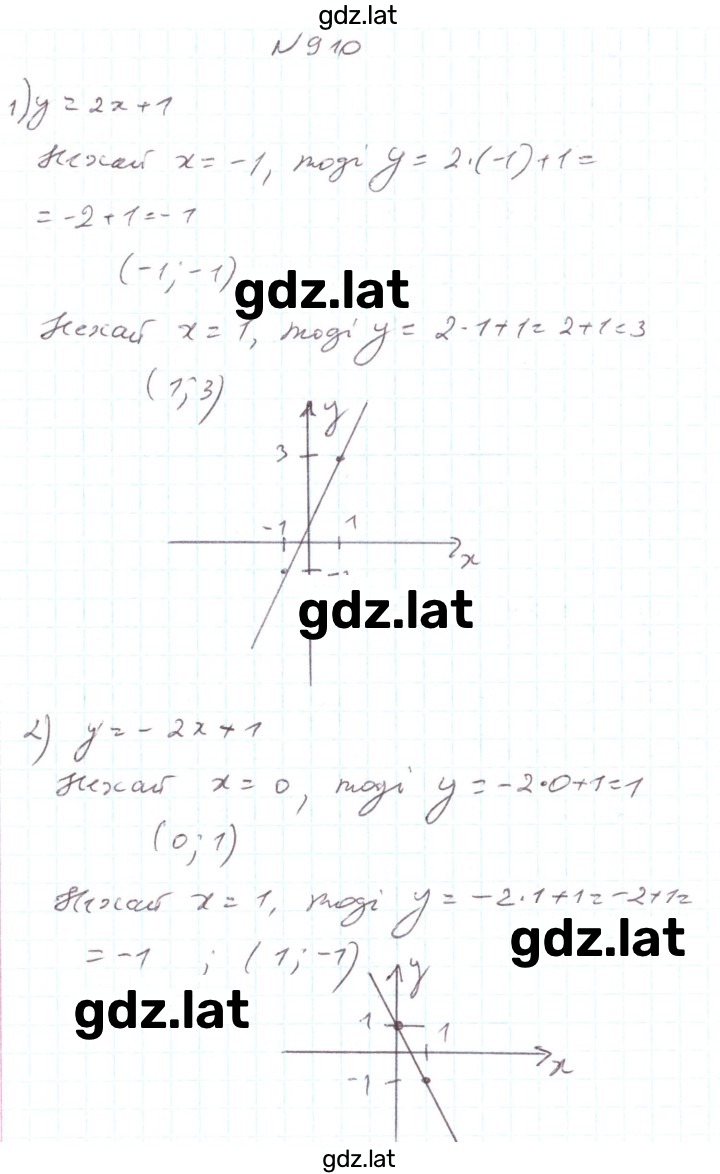 gdz.lat
N 910
1) y = 2x + 1
Нехай x = -1, тоді y = 2·(-1)+1=
= -2+1=-1
(-1; -1)
gdz.lat
Нехай x = 1, тоді y = 2·1+1= 2+1=3
(1; 3)
y
3
-1 1
x
gdz.lat
2) y = - 2x + 1
Нехай x = 0, тоді y = -2·0+1=1
(0; 1)
Нехай x = 1, тоді y = -2·1+1=-2+1=
gdz.lat
= -1 ; (1; -1)
y
gdz.lat
1 1
x
-1
gdz.lat